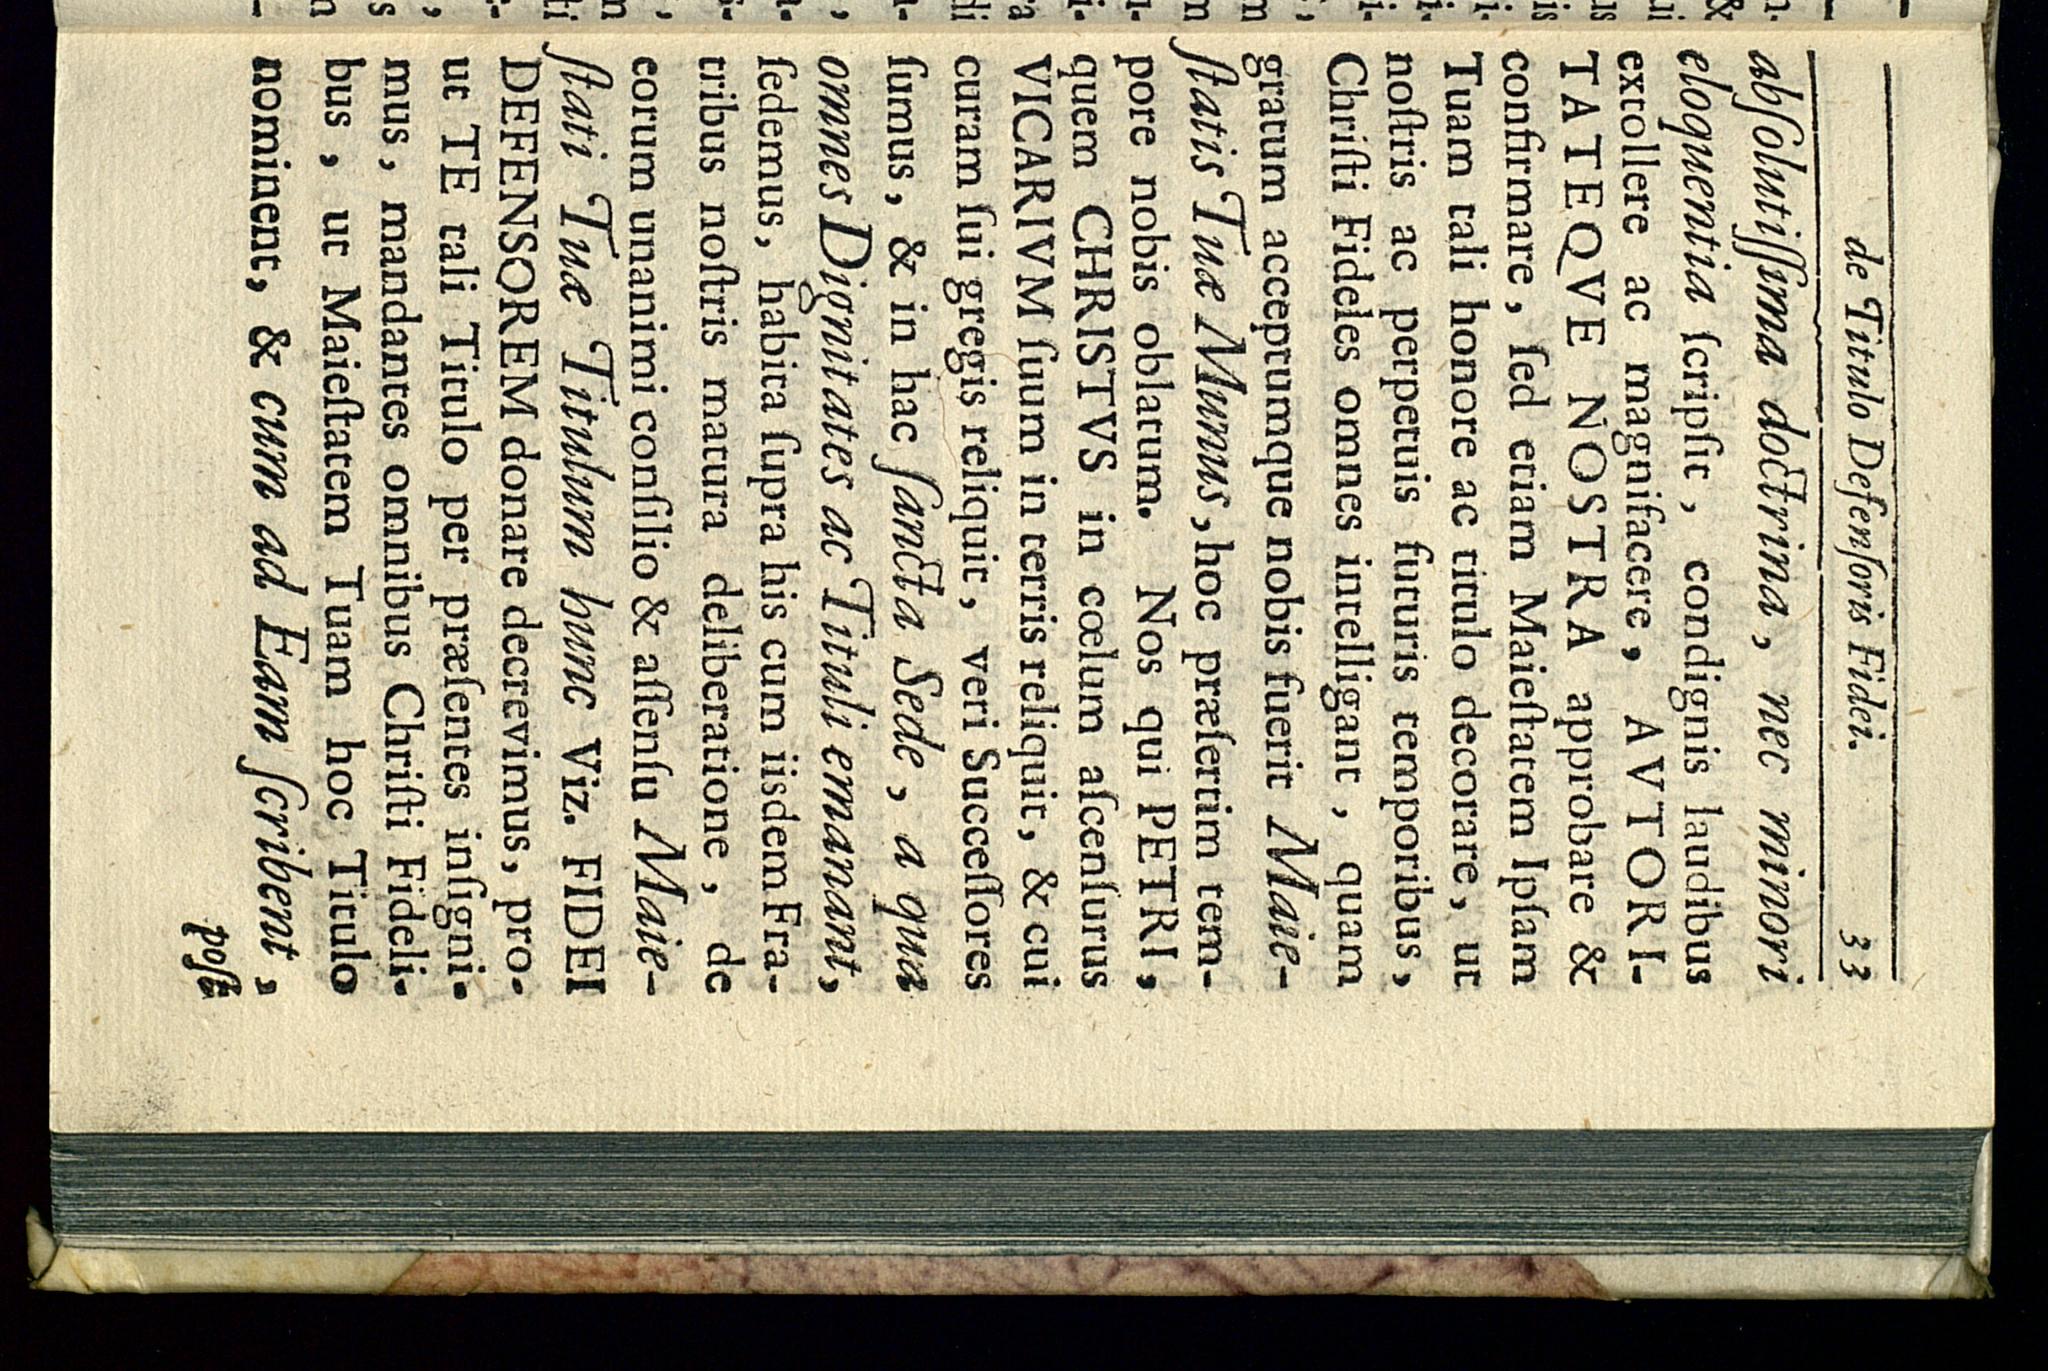 de Titulo Defenſoris Fidei. 33
abſolutiſſima doctrina, nec minori
eloquentia ſcripſit, condignis laudibus
extollere ac magnifacere, AVTORI-
TATEQVE NOSTRA approbare &
confirmare, ſed etiam Maieſtatem Ipſam
Tuam tali honore ac titulo decorare, ut
noſtris ac perpetuis futuris temporibus,
Chriſti Fideles omnes intelligant, quam
gratum acceptumque nobis fuerit Maie-
ſtatis Tuæ Munus, hoc præſertim tem-
pore nobis oblatum. Nos qui PETRI,
quem CHRISTVS in cœlum aſcenſurus
VICARIVM ſuum in terris reliquit, & cui
curam ſui gregis reliquit, veri Succeſſores
ſumus, & in hac ſancta Sede, a qua
omnes Dignitates ac Tituli emanant,
ſedemus, habita ſupra his cum iisdem Fra-
tribus noſtris matura deliberatione, de
eorum unanimi conſilio & aſſenſu Maie-
ſtati Tuæ Titulum hunc Viz. FIDEI
DEFENSOREM donare decrevimus, pro-
ut TE tali Titulo per præſentes inſigni-
mus, mandantes omnibus Chriſti Fideli-
bus, ut Maieſtatem Tuam hoc Titulo
nominent, & cum ad Eam ſcribent,
poſt